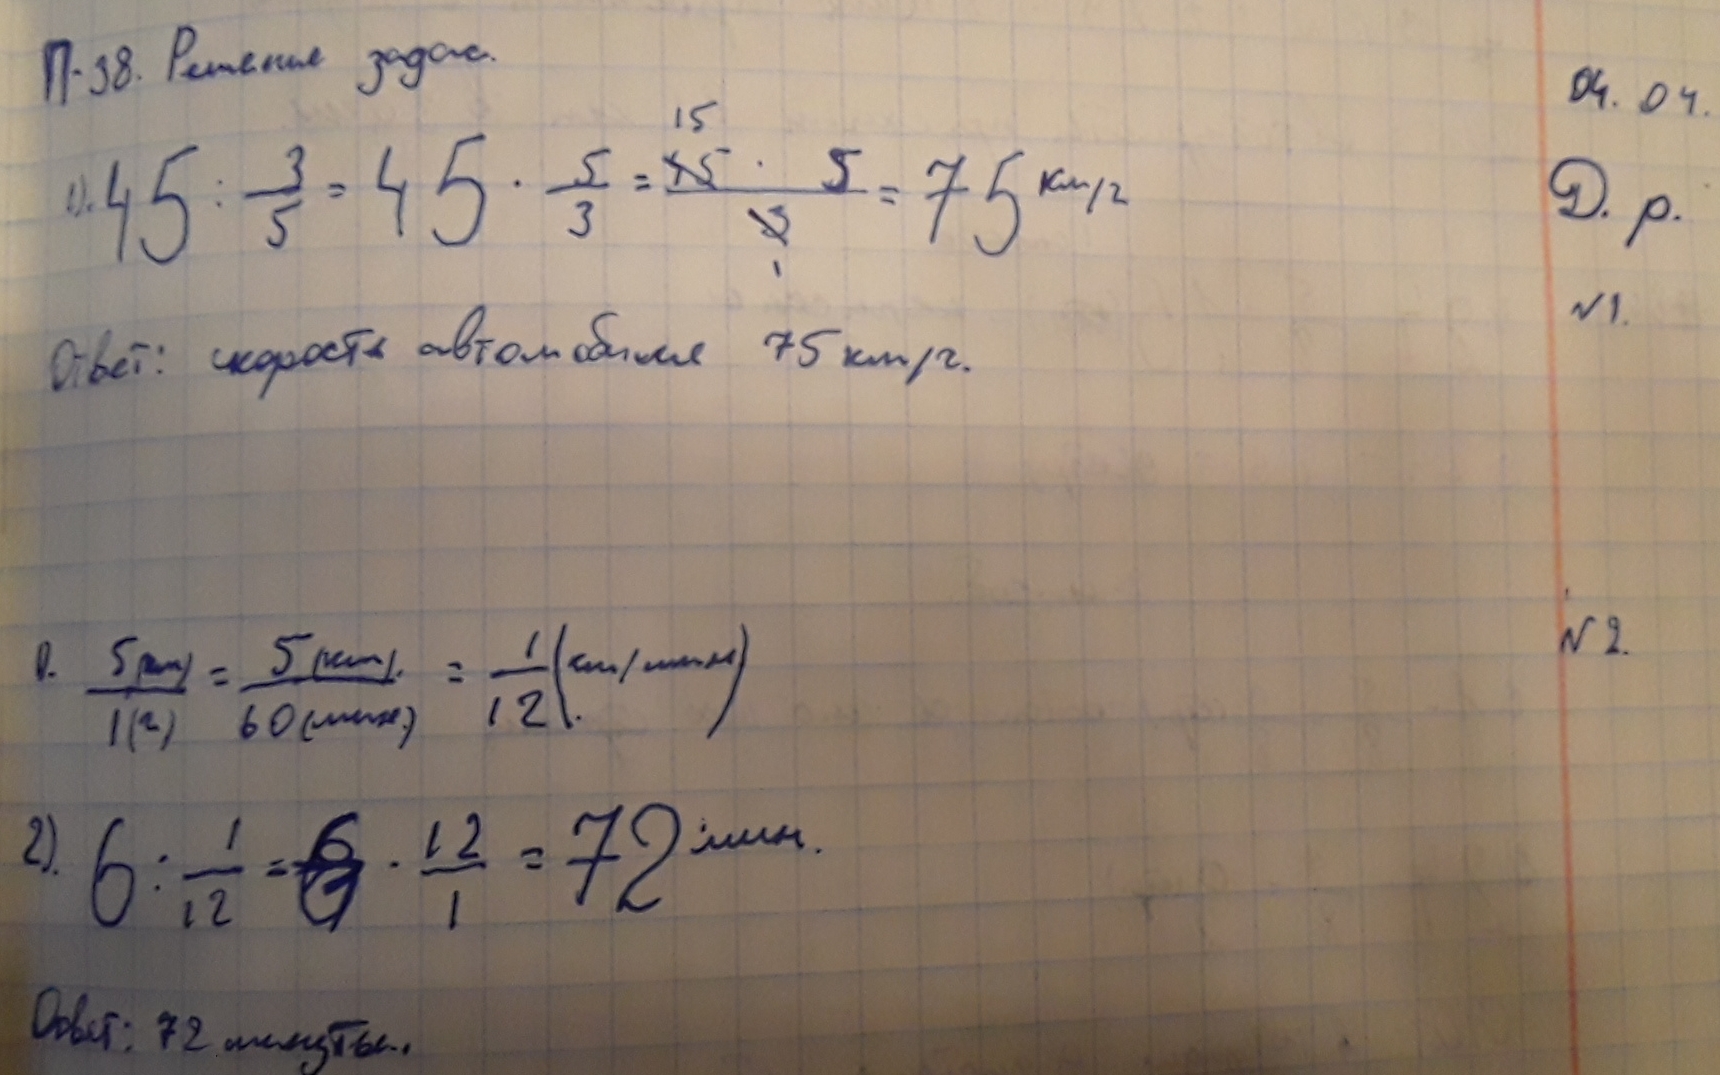 П-38. Решение задач.
04.04.
Д. р.
1). 45 : 3/5 = 45 · 5/3 = 45 · 5 / 3 = 75 км/ч
15
1
№1.
Ответ: скорость автомобиля 75 км/ч.
№2.
1). 5(км)/1(ч) = 5(км)./60(мин.) = 1/12 (км/мин)
2). 6 : 1/12 = 6 · 12/1 = 72 мин.
Ответ: 72 минуты.